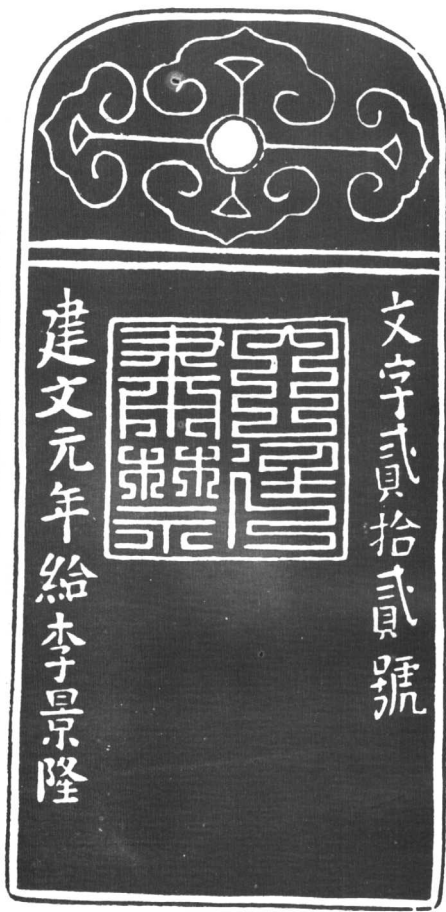 文字貳拾貳號
建文元年給李景隆